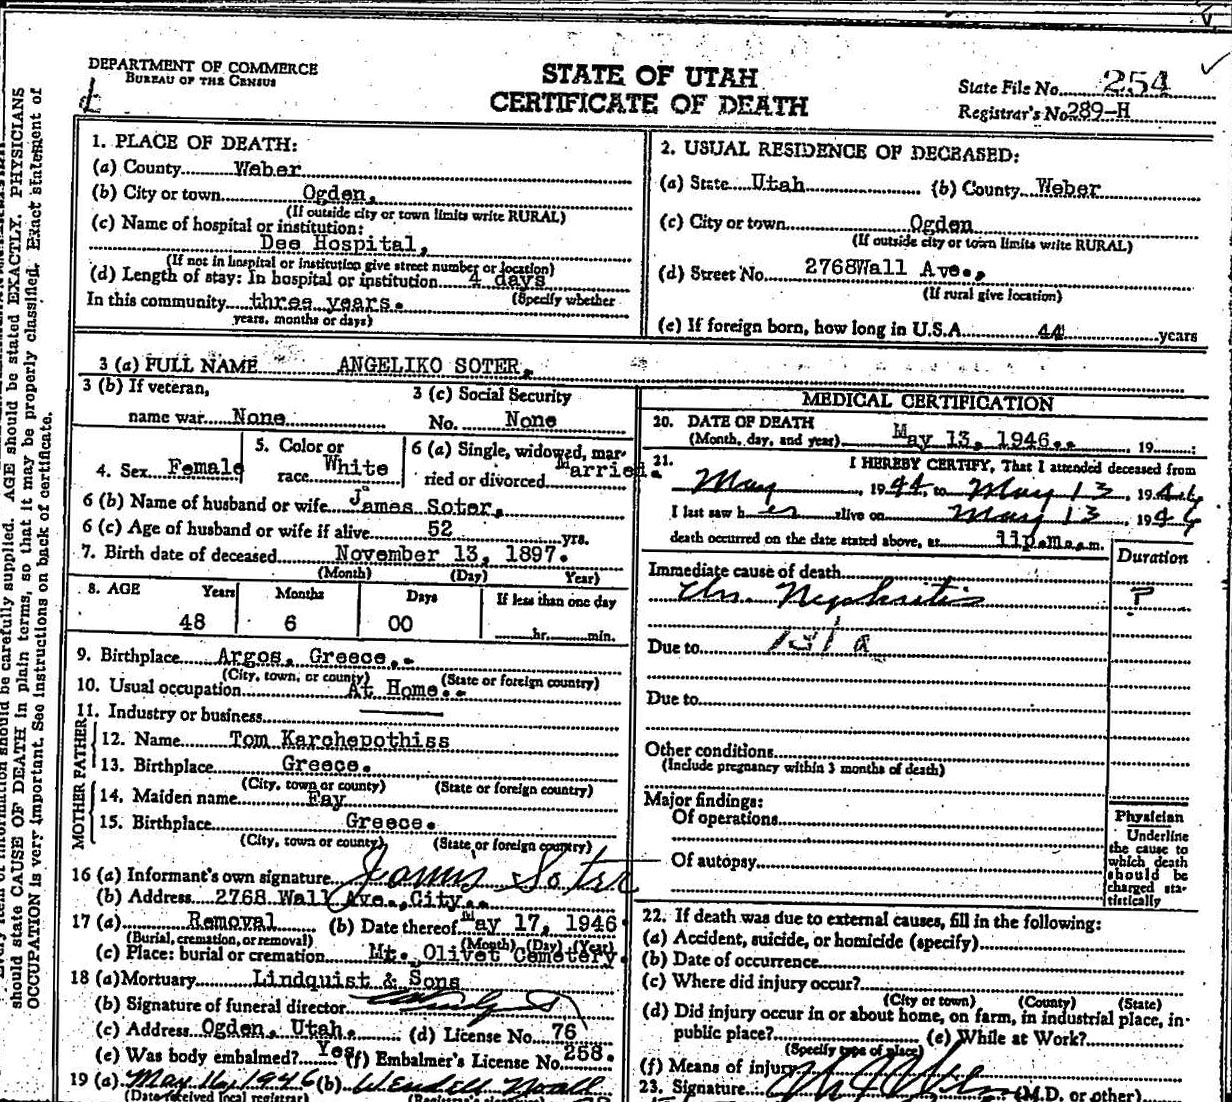 DEPARTMENT OF COMMERCE
BUREAU OF THE CENSUS
STATE OF UTAH
CERTIFICATE OF DEATH
State File No. 254
Registrar's No. 289-H
should be carefully supplied. AGE should be stated EXACTLY. PHYSICIANS
should state CAUSE OF DEATH in plain terms, so that it may be properly classified. Exact statement of
OCCUPATION is very important. See instructions on back of certificate.
1. PLACE OF DEATH:
(a) County Weber
(b) City or town Ogden,
(If outside city or town limits write RURAL)
(c) Name of hospital or institution:
Dee Hospital,
(If not in hospital or institution give street number or location)
(d) Length of stay: In hospital or institution 4 days
(Specify whether
In this community three years.
years, months or days)
2. USUAL RESIDENCE OF DECEASED:
(a) State Utah (b) County Weber
(c) City or town Ogden
(If outside city or town limits write RURAL)
(d) Street No. 2768Wall Ave.,
(If rural give location)
(e) If foreign born, how long in U.S.A. 44 years
3 (a) FULL NAME ANGELIKO SOTER.
3 (b) If veteran,
name war None
3 (c) Social Security
No. None
4. Sex Female
5. Color or
race White
6 (a) Single, widowed, mar-
ried or divorced Married.
6 (b) Name of husband or wife James Soter.
6 (c) Age of husband or wife if alive 52 yrs.
7. Birth date of deceased November 13, 1897.
(Month) (Day) Year)
8. AGE Years Months Days If less than one day
48 6 00 hr. min.
9. Birthplace Argos, Greece.
(City, town, or county) (State or foreign country)
10. Usual occupation At Home.
11. Industry or business
FATHER
12. Name Tom Karchepothiss
13. Birthplace Greece.
(City, town or county) (State or foreign country)
MOTHER
14. Maiden name Fay
15. Birthplace Greece.
(City, town or county) (State or foreign country)
16 (a) Informant's own signature James Soter
(b) Address 2768 Wall Ave., City.
17 (a) Removal (b) Date thereof May 17, 1946
(Burial, cremation, or removal) (Month) (Day) (Year)
(c) Place: burial or cremation Mt. Olivet Cemetery.
18 (a) Mortuary Lindquist & Sons
(b) Signature of funeral director
(c) Address Ogden, Utah. (d) License No. 76
(e) Was body embalmed? Yes (f) Embalmer's License No. 258.
19 (a) May 16, 1946 (b) Wendell Noall
(Date received local registrar)
MEDICAL CERTIFICATION
20. DATE OF DEATH
(Month, day, and year) May 13, 1946. 19
21. I HEREBY CERTIFY, That I attended deceased from
May, 1944, to May 13, 1946
I last saw her alive on May 13 1946
death occurred on the date stated above, at 11p.m. m.
Duration
Immediate cause of death
Chr. Nephritis ?
Due to 131a
Due to
Other conditions
(Include pregnancy within 3 months of death)
Major findings:
Of operations
Of autopsy
Physician
Underline
the cause to
which death
should be
charged sta-
tistically
22. If death was due to external causes, fill in the following:
(a) Accident, suicide, or homicide (specify)
(b) Date of occurrence
(c) Where did injury occur?
(City or town) (County) (State)
(d) Did injury occur in or about home, on farm, in industrial place, in
public place? (e) While at Work?
(Specify type of place)
(f) Means of injury
23. Signature (M.D. or other)